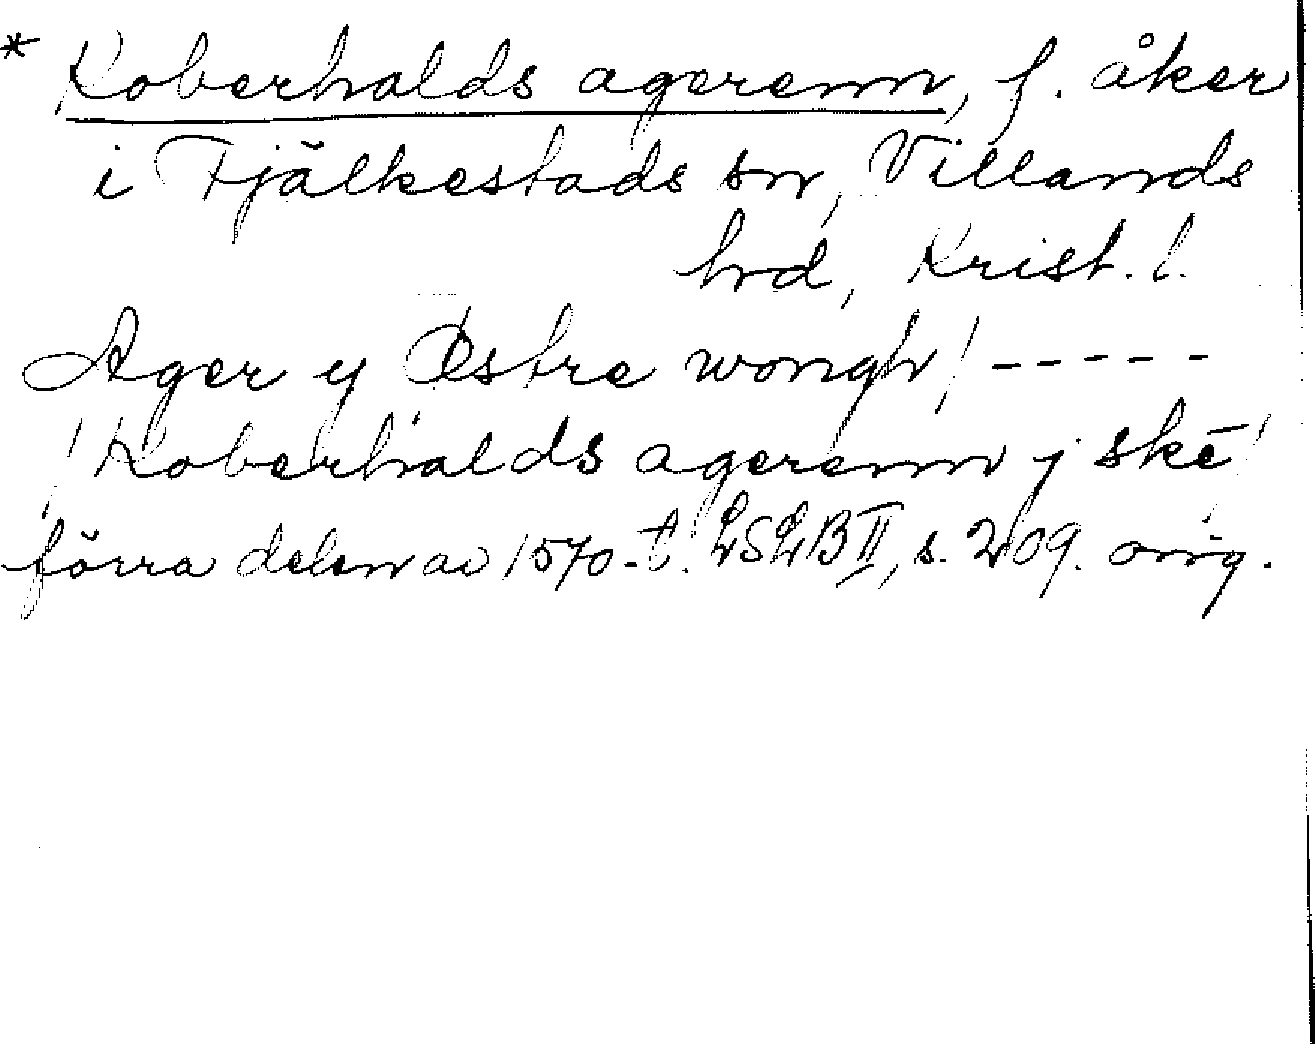 * Koberhalds agerenn, f. åker
i Fjälkestads sn, Villands
hd, Krist. l.
Ager y Østre wongh / -----
/ Koberhalds agerenn j skē /
förra delen av 1570-t. LSLB II, s. 209. orig.